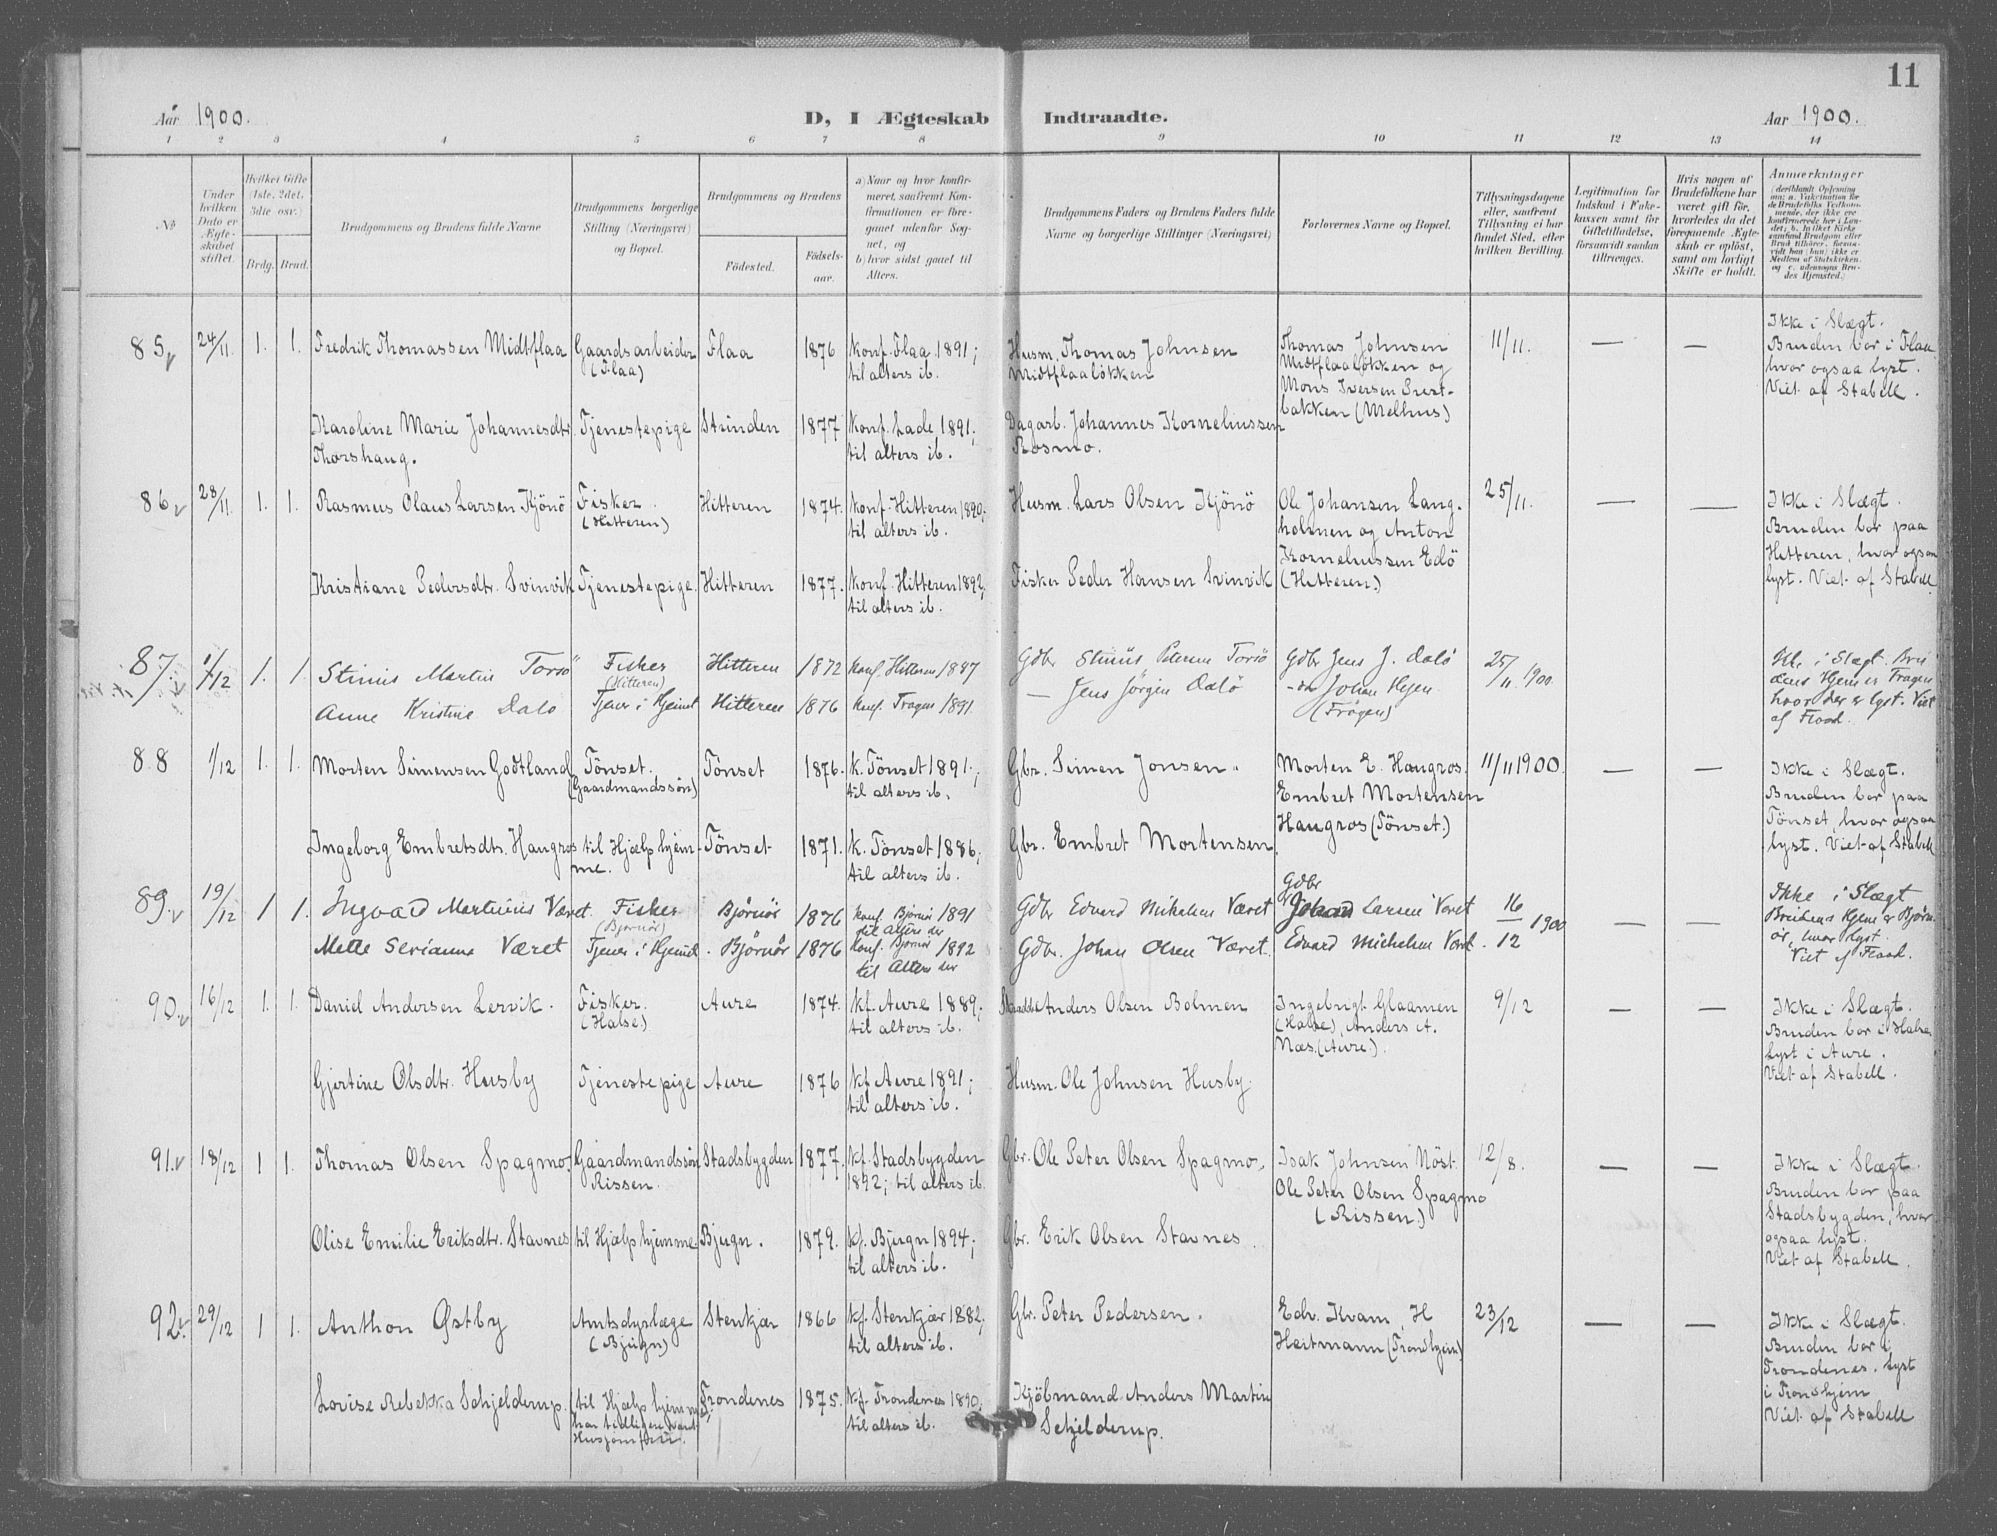 11
Aar 1900.
D, I Ægteskab Indtraadte.
Aar 1900.
1 2 3 4 5 6 7 8 9 10 11 12 13 14
№
Under hvilken Dato er Ægteskabet stiftet.
Hvilket Gifte (1ste, 2det, 3die osv.)
Brdg. Brud.
Brudgommens og Brudens fulde Navne
Brudgommens borgerlige Stilling (Næringsvei) og Bopæl.
Brudgommens og Brudens
Fødested.
Fødselsaar.
a) Naar og hvor konfirmeret, saafremt Konfirmationen er foregaaet udenfor Sognet, og
b) hvor sidst gaaet til Alters.
Brudgommens Faders og Brudens Faders fulde Navne og borgerlige Stillinger (Næringsvei)
Forlovernes Navne og Bopæl.
Tillysningsdagene eller, saafremt Tillysning ei har fundet Sted, efter hvilken Bevilling.
Legitimation for Indskud i Enkekassen samt for Giftetilladelse, forsaavidt saadan tiltrænges.
Hvis nogen af Brudefolkene har været gift før, hvorledes da det foregaaende Ægteskab er opløst, samt om lovligt Skifte er holdt.
Anmærkninger
85 24/11 1. 1. Fredrik Thomassen Midtflaa Gaardsarbeider (Flaa) Flaa 1876 Konf. Flaa 1891; til alters ib. Husm. Thomas Johnsen Midtflaaløkken Thomas Johnsen Midtflaaløkken og Mons Iversen bakken (Melhus) 11/11. — — Ikke i Slægt. Bruden bor i Flaa, hvor ogsaa lyst. Viet af Stabell.
Karoline Marie Johannesdtr. Thorshaug. Tjenestepige Strinden 1877 Konf. Lade 1891; til alters ib. Dagarb. Johannes Korneliussen Rosmo.
86 28/11. 1. 1. Rasmus Olaus Larsen Kjønø Fisker (Hitteren) Hitteren 1874. Konf. Hitteren 1890; til alters ib. Husm. Lars Olsen Kjønø Ole Johansen Langholmen og Anton Korneliussen Edø (Hitteren.) 25/11. — — Ikke i Slægt. Bruden bor paa Hitteren, hvor ogsaa lyst. Viet af Stabell.
Kristiane Pedersdtr. Svinvik Tjenestepige. Hitteren 1877. Konf. Hitteren 1892; til alters ib. Fisker Peder Hansen Svinvik
87. 1/12 1. 1. Stinius Martin Torsø Fisker (Hitteren) Hitteren 1872 Konf. Hitteren 1887 Gdbr Stinius Petersen Torsø Gdbr Jens J. Dalø 25/11. 1900. i Slægt. Brudens Hjem er Frøyen hvor der er lyst. Viet af Flood.
Anne Kristine Dalø Tjener i Hjemmet Hitteren 1876 Konf. Frøyen 1891. — Jens Jørgen Dalø — Johan (Frøyen)
88 1/12 1. 1. Morten Simensen Godtland Tønset. (Gaardmandssøn) Tønset 1876. k. Tønset 1891; til alters ib. Gbr. Simen Jonsen. Morten E. Haugros. Embret Mortensen Haugros (Tønset.) 11/11 1900. — — Ikke i Slægt. Bruden bor paa Tønset, hvor ogsaa lyst. Viet af Stabell
Ingeborg Embretsdtr. Haugros til Hjælp hjemme. Tønset 1871. k. Tønset 1886; til alters ib. Gbr. Embret Mortensen
89. 19/12 1 1. Ingvard Martinus Været Fisker (Bjørnør) Bjørnør 1876 Konf. Bjørnør 1891 til Alters der Gdbr Edvard Mikelsen Været Gdbr Johan Larsen Været 16/12 1900 — — Ikke i Slægt Brudens Hjem er Bjørnør, hvor lyst. Viet af Flood.
Mette Serianna Været Tjener i Hjemmet. Bjørnør 1876 Konf. Bjørnør 1892 til Alters der Gdbr. Johan Olsen Været. Edvard Michelsen Været.
90. 16/12 1. 1. Daniel Andersen Lervik. Fisker. (Halse) Aure 1874. kf. Aure 1889; til alters ib. Anders Olsen Bolmen Ingebrigt Glaamen (Halse), Anders A. Næs. (Aure.) 9/12 — — Ikke i Slægt. Bruden bor i Halse. Lyst i Aure. Viet af Stabell.
Gjertine Olsdtr. Husby Tjenestepige Aure 1876 kf. Aure 1891; til alters ib. Husm. Ole Johnsen Husby.
91. 18/12 1 1. Thomas Olsen Spagmo. Gaardmandssøn Rissen. Stadsbygden 1877. kf. Stadsbygden 1892; til alters ib. Gbr. Ole Peter Olsen Spagmo. Isak Johnsen Nøst. Ole Peter Olsen Spagmo (Rissen.) 12/8. — — Ikke i Slægt. Bruden bor paa Stadsbygden, hvor ogsaa lyst. Viet af Stabell.
Olise Emilie Eriksdtr. Stavnes til Hjælp hjemme Bjugn. 1879. kf. Bjugn 1894; til alters ib. Gbr. Erik Olsen Stavnes.
92. 29/12 1 1. Anthon Østby Amtsdyrlæge (Bjugn) Stenkjær 1866 kf. Stenkjær 1882; til alters ib. Gbr. Peter Pedersen. Edv. Kvam, H Heitmann (Trondhjem) 23/12 — — Ikke i Slægt. Bruden bor i Trondenes. Lyst i Trondhjem Viet af Stabell
Lovise Rebekka Schjelderup. (til Hjælp hjemme, har tidligere været Trondenes 1875. kf. Trondenes 1890; til alters ib. Kjøbmand Anders Martin Schjelderup.